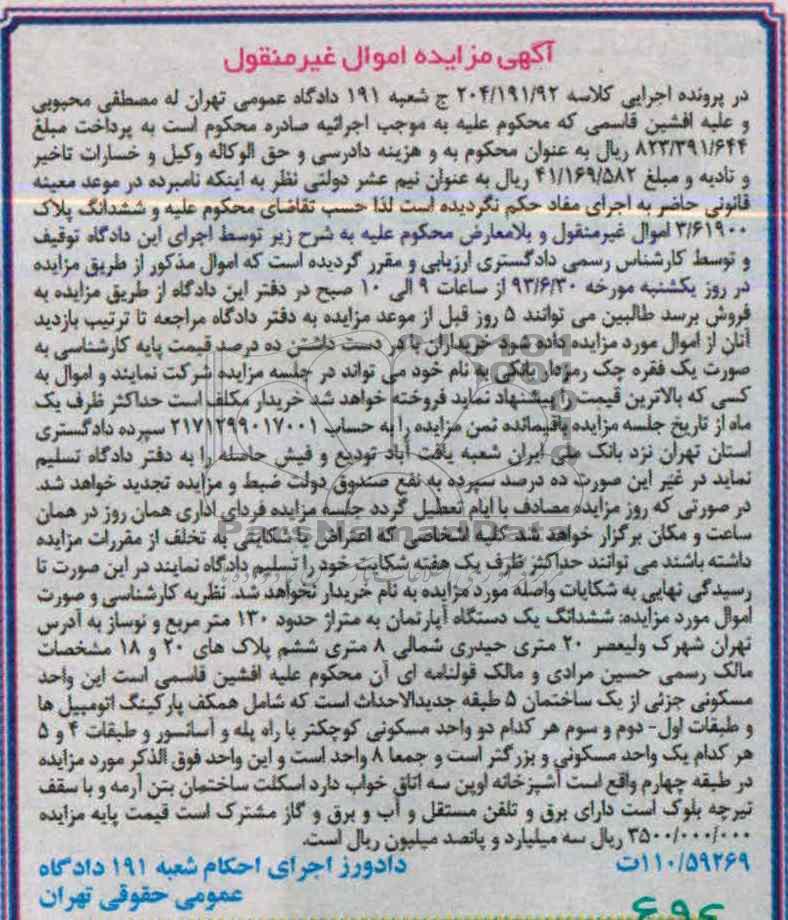 آگهی مزایده اموال غیرمنقول
در پرونده اجرایی کلاسه ۲۰۴/۱۹۱/۹۲ ج شعبه ۱۹۱ دادگاه عمومی تهران له مصطفی محبوبی
و علیه افشین قاسمی که محکوم علیه به موجب اجرائیه صادره محکوم است به پرداخت مبلغ
۸۲۳/۳۹۱/۶۴۴ ریال به عنوان محکوم به و هزینه دادرسی و حق الوکاله وکیل و خسارات تاخیر
و تادیه و مبلغ ۴۱/۱۶۹/۵۸۲ ریال به عنوان نیم عشر دولتی نظر به اینکه نامبرده در موعد معینه
قانونی حاضر به اجرای مفاد حکم نگردیده است لذا حسب تقاضای محکوم علیه و ششدانگ پلاک
۳/۶۱۹۰۰ اموال غیرمنقول و بلامعارض محکوم علیه به شرح زیر توسط اجرای این دادگاه توقیف
و توسط کارشناس رسمی دادگستری ارزیابی و مقرر گردیده است که اموال مذکور از طریق مزایده
در روز یکشنبه مورخه ۹۳/۶/۳۰ از ساعات ۹ الی ۱۰ صبح در دفتر این دادگاه از طریق مزایده به
فروش برسد طالبین می توانند ۵ روز قبل از موعد مزایده به دفتر دادگاه مراجعه تا ترتیب بازدید
آنان از اموال مورد مزایده داده شود خریداران با در دست داشتن ده درصد قیمت پایه کارشناسی به
صورت یک فقره چک رمزدار بانکی به نام خود می تواند در جلسه مزایده شرکت نمایند و اموال به
کسی که بالاترین قیمت را پیشنهاد نماید فروخته خواهد شد خریدار مکلف است حداکثر ظرف یک
ماه از تاریخ جلسه مزایده باقیمانده ثمن مزایده را به حساب ۲۱۷۱۲۹۹۰۱۷۰۰۱ سپرده دادگستری
استان تهران نزد بانک ملی ایران شعبه یافت آباد تودیع و فیش حاصله را به دفتر دادگاه تسلیم
نماید در غیر این صورت ده درصد سپرده به نفع صندوق دولت ضبط و مزایده تجدید خواهد شد.
در صورتی که روز مزایده مصادف با ایام تعطیل گردد جلسه مزایده فردای اداری همان روز در همان
ساعت و مکان برگزار خواهد شد. کلیه اشخاصی که اعتراض یا شکایتی به تخلف از مقررات مزایده
داشته باشند می توانند حداکثر ظرف یک هفته شکایت خود را تسلیم دادگاه نمایند در این صورت تا
رسیدگی نهایی به شکایات واصله مورد مزایده به نام خریدار نخواهد شد. نظریه کارشناسی و صورت
اموال مورد مزایده: ششدانگ یک دستگاه آپارتمان به متراژ حدود ۱۳۰ متر مربع و نوساز به آدرس
تهران شهرک ولیعصر ۲۰ متری حیدری شمالی ۸ متری ششم پلاک های ۲۰ و ۱۸ مشخصات
مالک رسمی حسین مرادی و مالک قولنامه ای آن محکوم علیه افشین قاسمی است این واحد
مسکونی جزئی از یک ساختمان ۵ طبقه جدیدالاحداث است که شامل همکف پارکینگ اتومبیل ها
و طبقات اول- دوم و سوم هر کدام دو واحد مسکونی کوچکتر با راه پله و آسانسور و طبقات ۴ و ۵
هر کدام یک واحد مسکونی و بزرگتر است و جمعا ۸ واحد است و این واحد فوق الذکر مورد مزایده
در طبقه چهارم واقع است آشپزخانه اوپن سه اتاق خواب دارد اسکلت ساختمان بتن آرمه و با سقف
تیرچه بلوک است دارای برق و تلفن مستقل و آب و برق و گاز مشترک است قیمت پایه مزایده
۳۵۰۰/۰۰۰/۰۰۰ ریال سه میلیارد و پانصد میلیون ریال است.
۱۱۰/۵۹۲۶۹ت
دادورز اجرای احکام شعبه ۱۹۱ دادگاه
عمومی حقوقی تهران
ParsNamadData